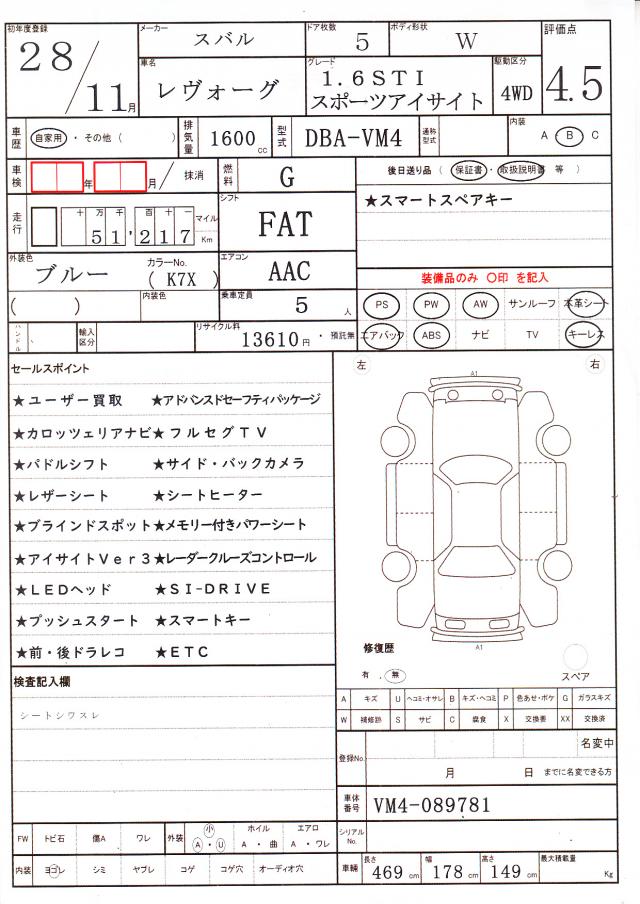 初年度登録 28/11月 メーカー スバル ドア枚数 5 ボディ形状 W 評価点 4.5
車名 レヴォーグ グレード 1.6STI スポーツアイサイト 駆動区分 4WD
車歴 自家用・その他( ) 排気量 1600cc 型式 DBA-VM4 通称型式 内装 A・B C
車検 年 月 抹消 燃料 G 後日送り品 (保証書・取扱説明書 等)
走行 十万千百十一 51,217 マイル Km シフト FAT ★スマートスペアキー
外装色 ブルー カラーNo. (K7X) エアコン AAC
装備品のみ 〇印 を記入
( ) 内装色 乗車定員 5人 PS PW AW サンルーフ 本革シート
ハンドル 輸入区分 リサイクル料 13610円・預託無 エアバック ABS ナビ TV キーレス
セールスポイント 左 右
A1
★ユーザー買取 ★アドバンスドセーフティパッケージ
★カロッツェリアナビ★フルセグTV
★パドルシフト ★サイド・バックカメラ
★レザーシート ★シートヒーター
★ブラインドスポット★メモリー付きパワーシート
★アイサイトVer3★レーダークルーズコントロール
★LEDヘッド ★SI-DRIVE
★プッシュスタート ★スマートキー
★前・後ドラレコ ★ETC
A1
修復歴
有 . 無 スペア
検査記入欄
シートシワスレ
A キズ U ヘコミ・オサレ B キズ・ヘコミ P 色あせ・ボケ G ガラスキズ
W 補修跡 S サビ C 腐食 X 交換要 XX 交換済
登録No. 名変中
月 日 までに名変できる方
車体番号 VM4-089781
FW トビ石 傷A ワレ 外装 小 A・U ホイル A・曲 エアロ A・ワレ シリアルNo.
内装 ヨゴレ シミ ヤブレ コゲ コゲ穴 オーディオ穴 車輛 長さ 469cm 幅 178cm 高さ 149cm 最大積載量 Kg